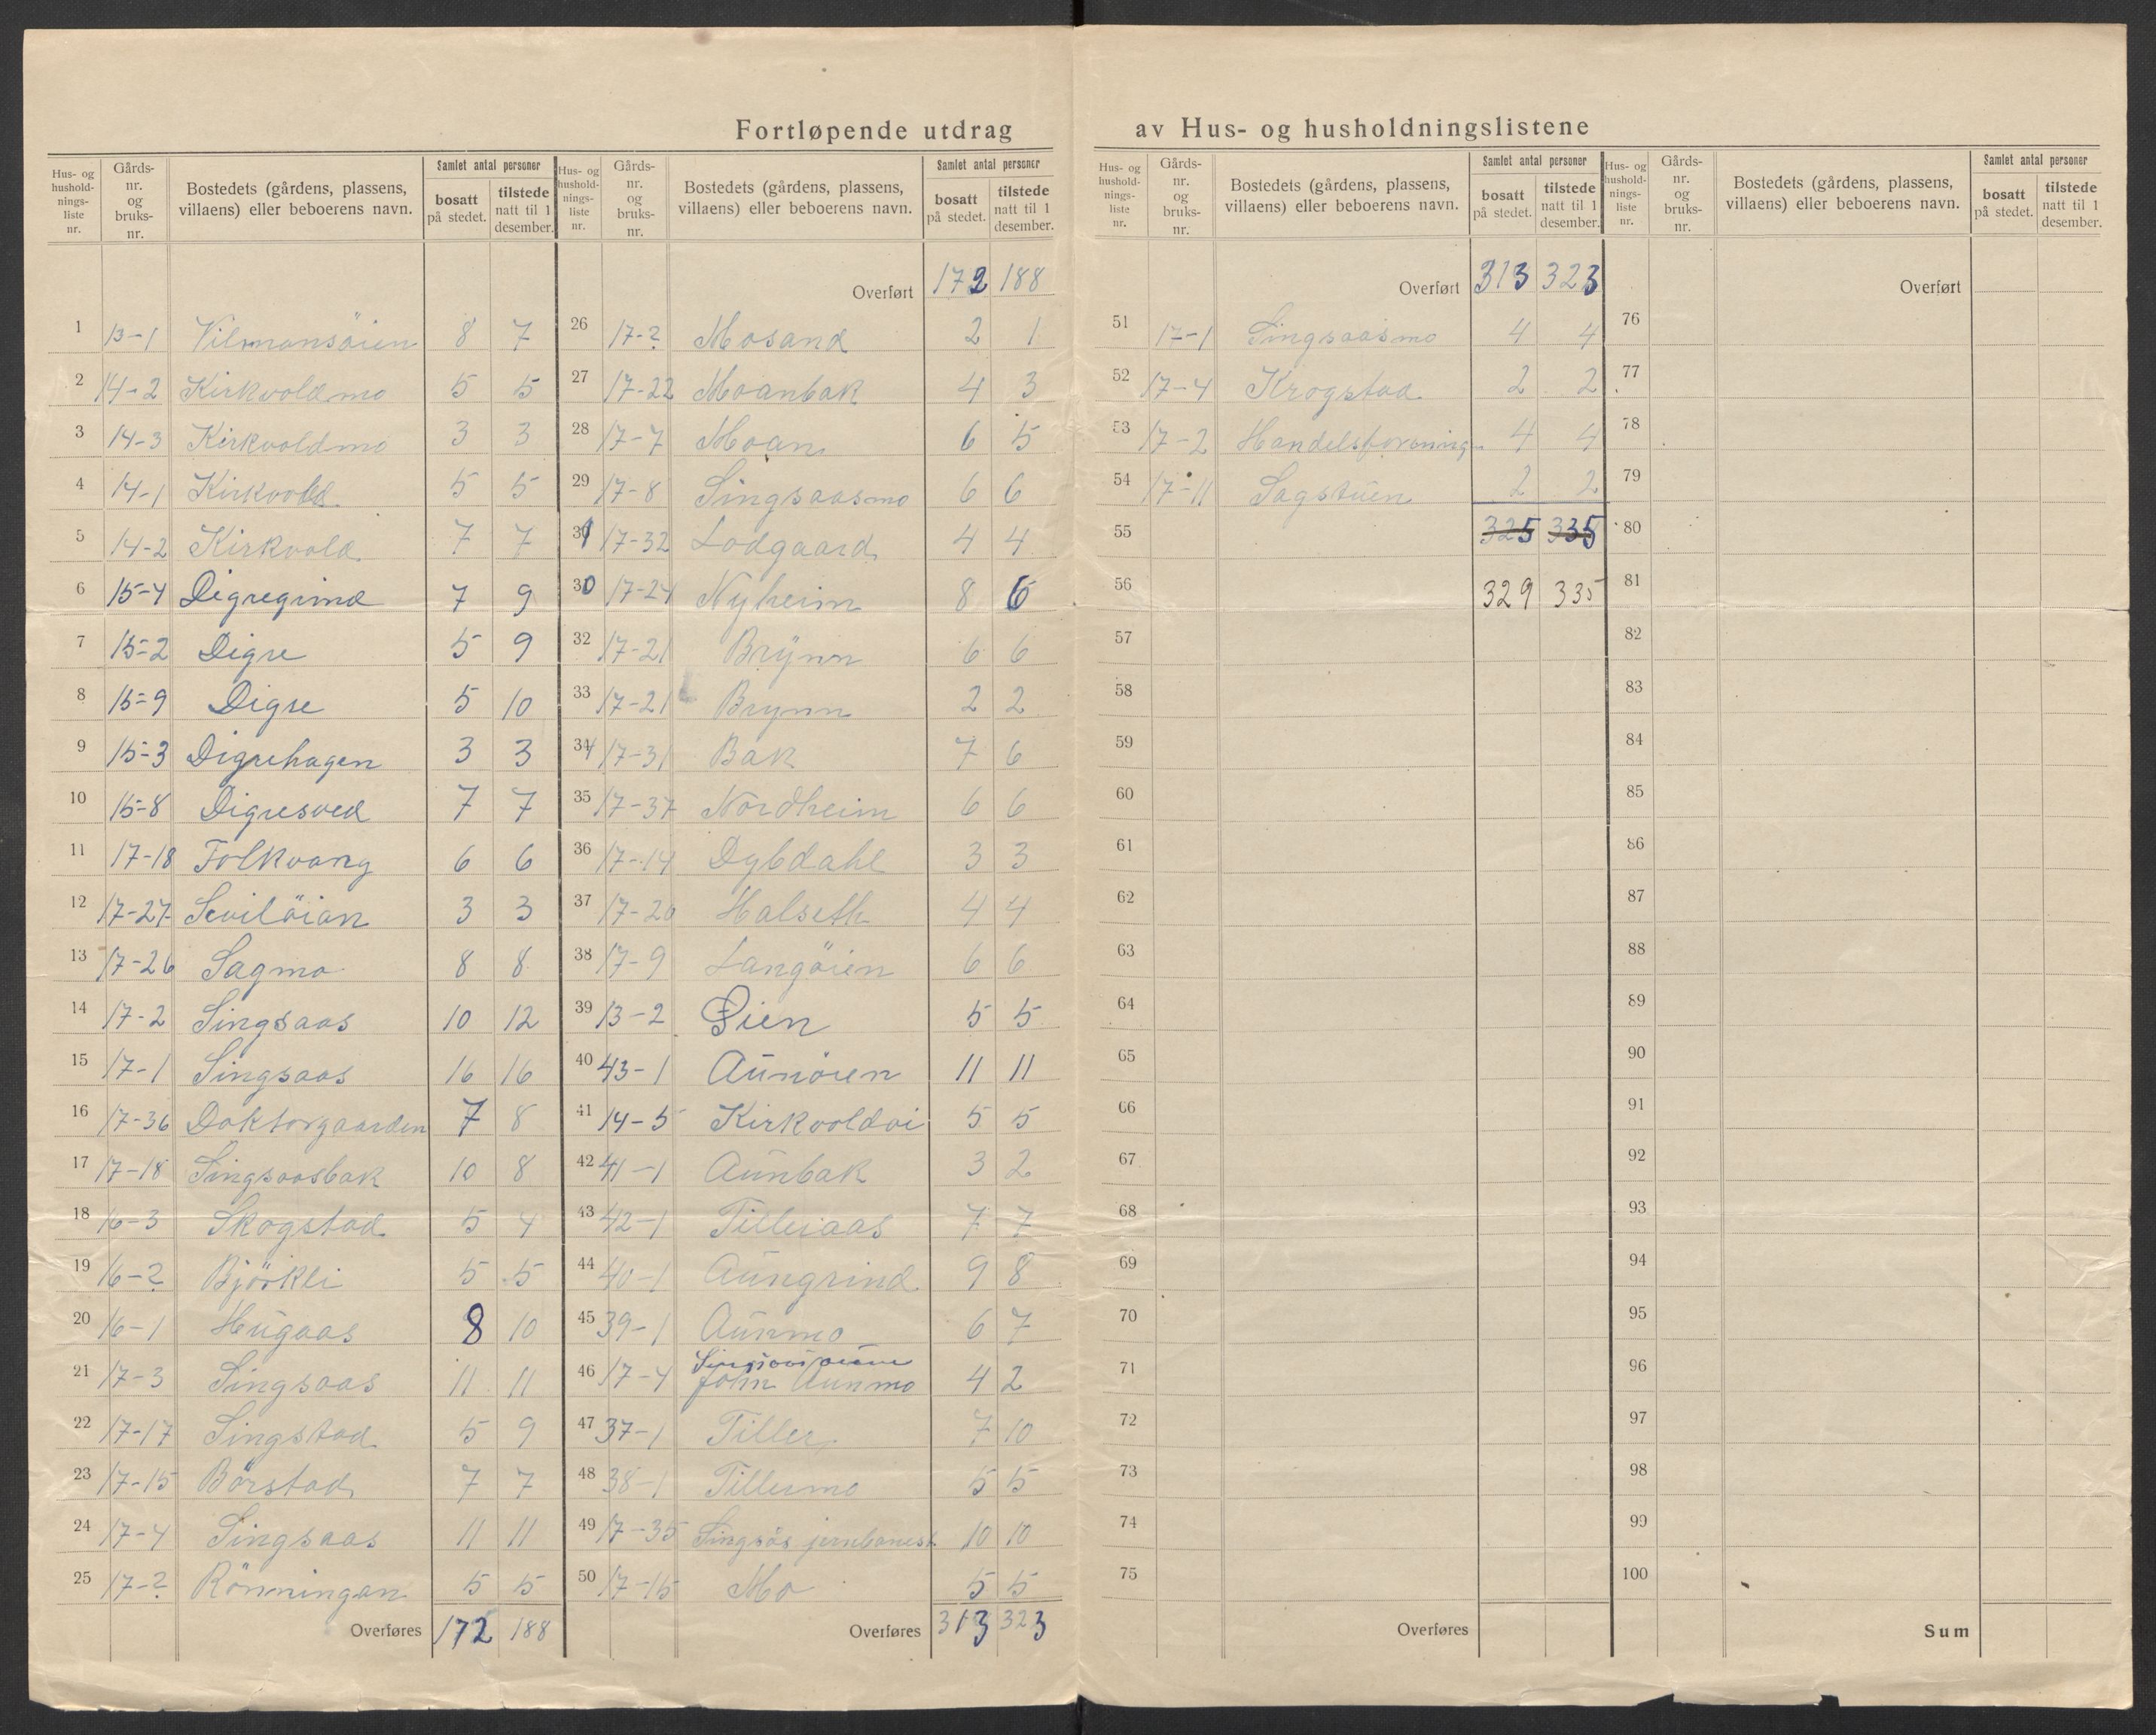 Fortløpende utdrag av Hus- og husholdningslistene
Hus- og hushold- nings- liste nr. | Gårds- nr. og bruks- nr. | Bostedets (gårdens, plassens, villaens) eller beboerens navn. | Samlet antal personer | bosatt på stedet. | tilstede natt til 1 desember.
1 13-1 Vilmansöien 8 7
2 14-2 Kirkvoldmo 5 5
3 14-3 Kirkvoldmo 3 3
4 14-1 Kirkvold 5 5
5 14-2 Kirkvold 7 7
6 15-4 Digregrind 7 9
7 15-2 Digre 5 9
8 15-9 Digre 5 10
9 15-3 Digrehagen 3 3
10 15-8 Digresved 7 7
11 17-18 Folkvang 6 6
12 17-27 Sviløian 3 3
13 17-26 Sagmo 8 8
14 17-2 Singsaas 10 12
15 17-1 Singsaas 16 16
16 17-36 Doktorgaarden 7 8
17 17-18 Singsaasbak 10 8
18 16-3 Skogstad 5 4
19 16-2 Björkli 5 5
20 16-1 Hugaas 8 10
21 17-3 Singsaas 11 11
22 17-17 Singstad 5 9
23 17-15 Börstad 7 7
24 17-4 Singsaas 11 11
25 17-? Rönningan 5 5
Overføres 172 188
Hus- og hushold- nings- liste nr. | Gårds- nr. og bruks- nr. | Bostedets (gårdens, plassens, villaens) eller beboerens navn. | Samlet antal personer | bosatt på stedet. | tilstede natt til 1 desember.
Overført 172 188
26 17-? Mosand 2 1
27 17-22 Moanbak 4 3
28 17-7 Moan 6 5
29 17-8 Singsaasmo 6 6
31 17-32 Lodgaard 4 4
30 17-24 Nyheim 8 6
32 17-21 Brynn 6 6
33 17-21 Brynn 2 2
34 17-31 Bak 7 6
35 17-37 Nordheim 6 6
36 17-14 Dybdahl 3 3
37 17-20 Halseth 4 4
38 17-9 Langöien 6 6
39 13-2 Øien 5 5
40 43-1 Aunöien 11 11
41 14-5 Kirkvoldvi 5 5
42 41-1 Aunbak 3 2
43 42-1 Tilleraas 7 7
44 40-1 Aungrind 9 8
45 39-1 Aunmo 6 7
46 17-4 John Aunmo 4 2
47 37-1 Tiller 7 10
48 38-1 Tillermo 5 5
49 17-35 Singsås jernbanest 10 10
50 17-15 Mo 5 5
Overføres 313 323
Hus- og hushold- nings- liste nr. | Gårds- nr. og bruks- nr. | Bostedets (gårdens, plassens, villaens) eller beboerens navn. | Samlet antal personer | bosatt på stedet. | tilstede natt til 1 desember.
Overført 313 323
51 17-1 Singsaasmo 4 4
52 17-4 Krogstad 2 2
53 17-2 Handelsforening 4 4
54 17-11 Sagstuen 2 2
55 325 335
56 329 335
57
58
59
60
61
62
63
64
65
66
67
68
69
70
71
72
73
74
75
Overføres
Hus- og hushold- nings- liste nr. | Gårds- nr. og bruks- nr. | Bostedets (gårdens, plassens, villaens) eller beboerens navn. | Samlet antal personer | bosatt på stedet. | tilstede natt til 1 desember.
Overført
76
77
78
79
80
81
82
83
84
85
86
87
88
89
90
91
92
93
94
95
96
97
98
99
100
Sum